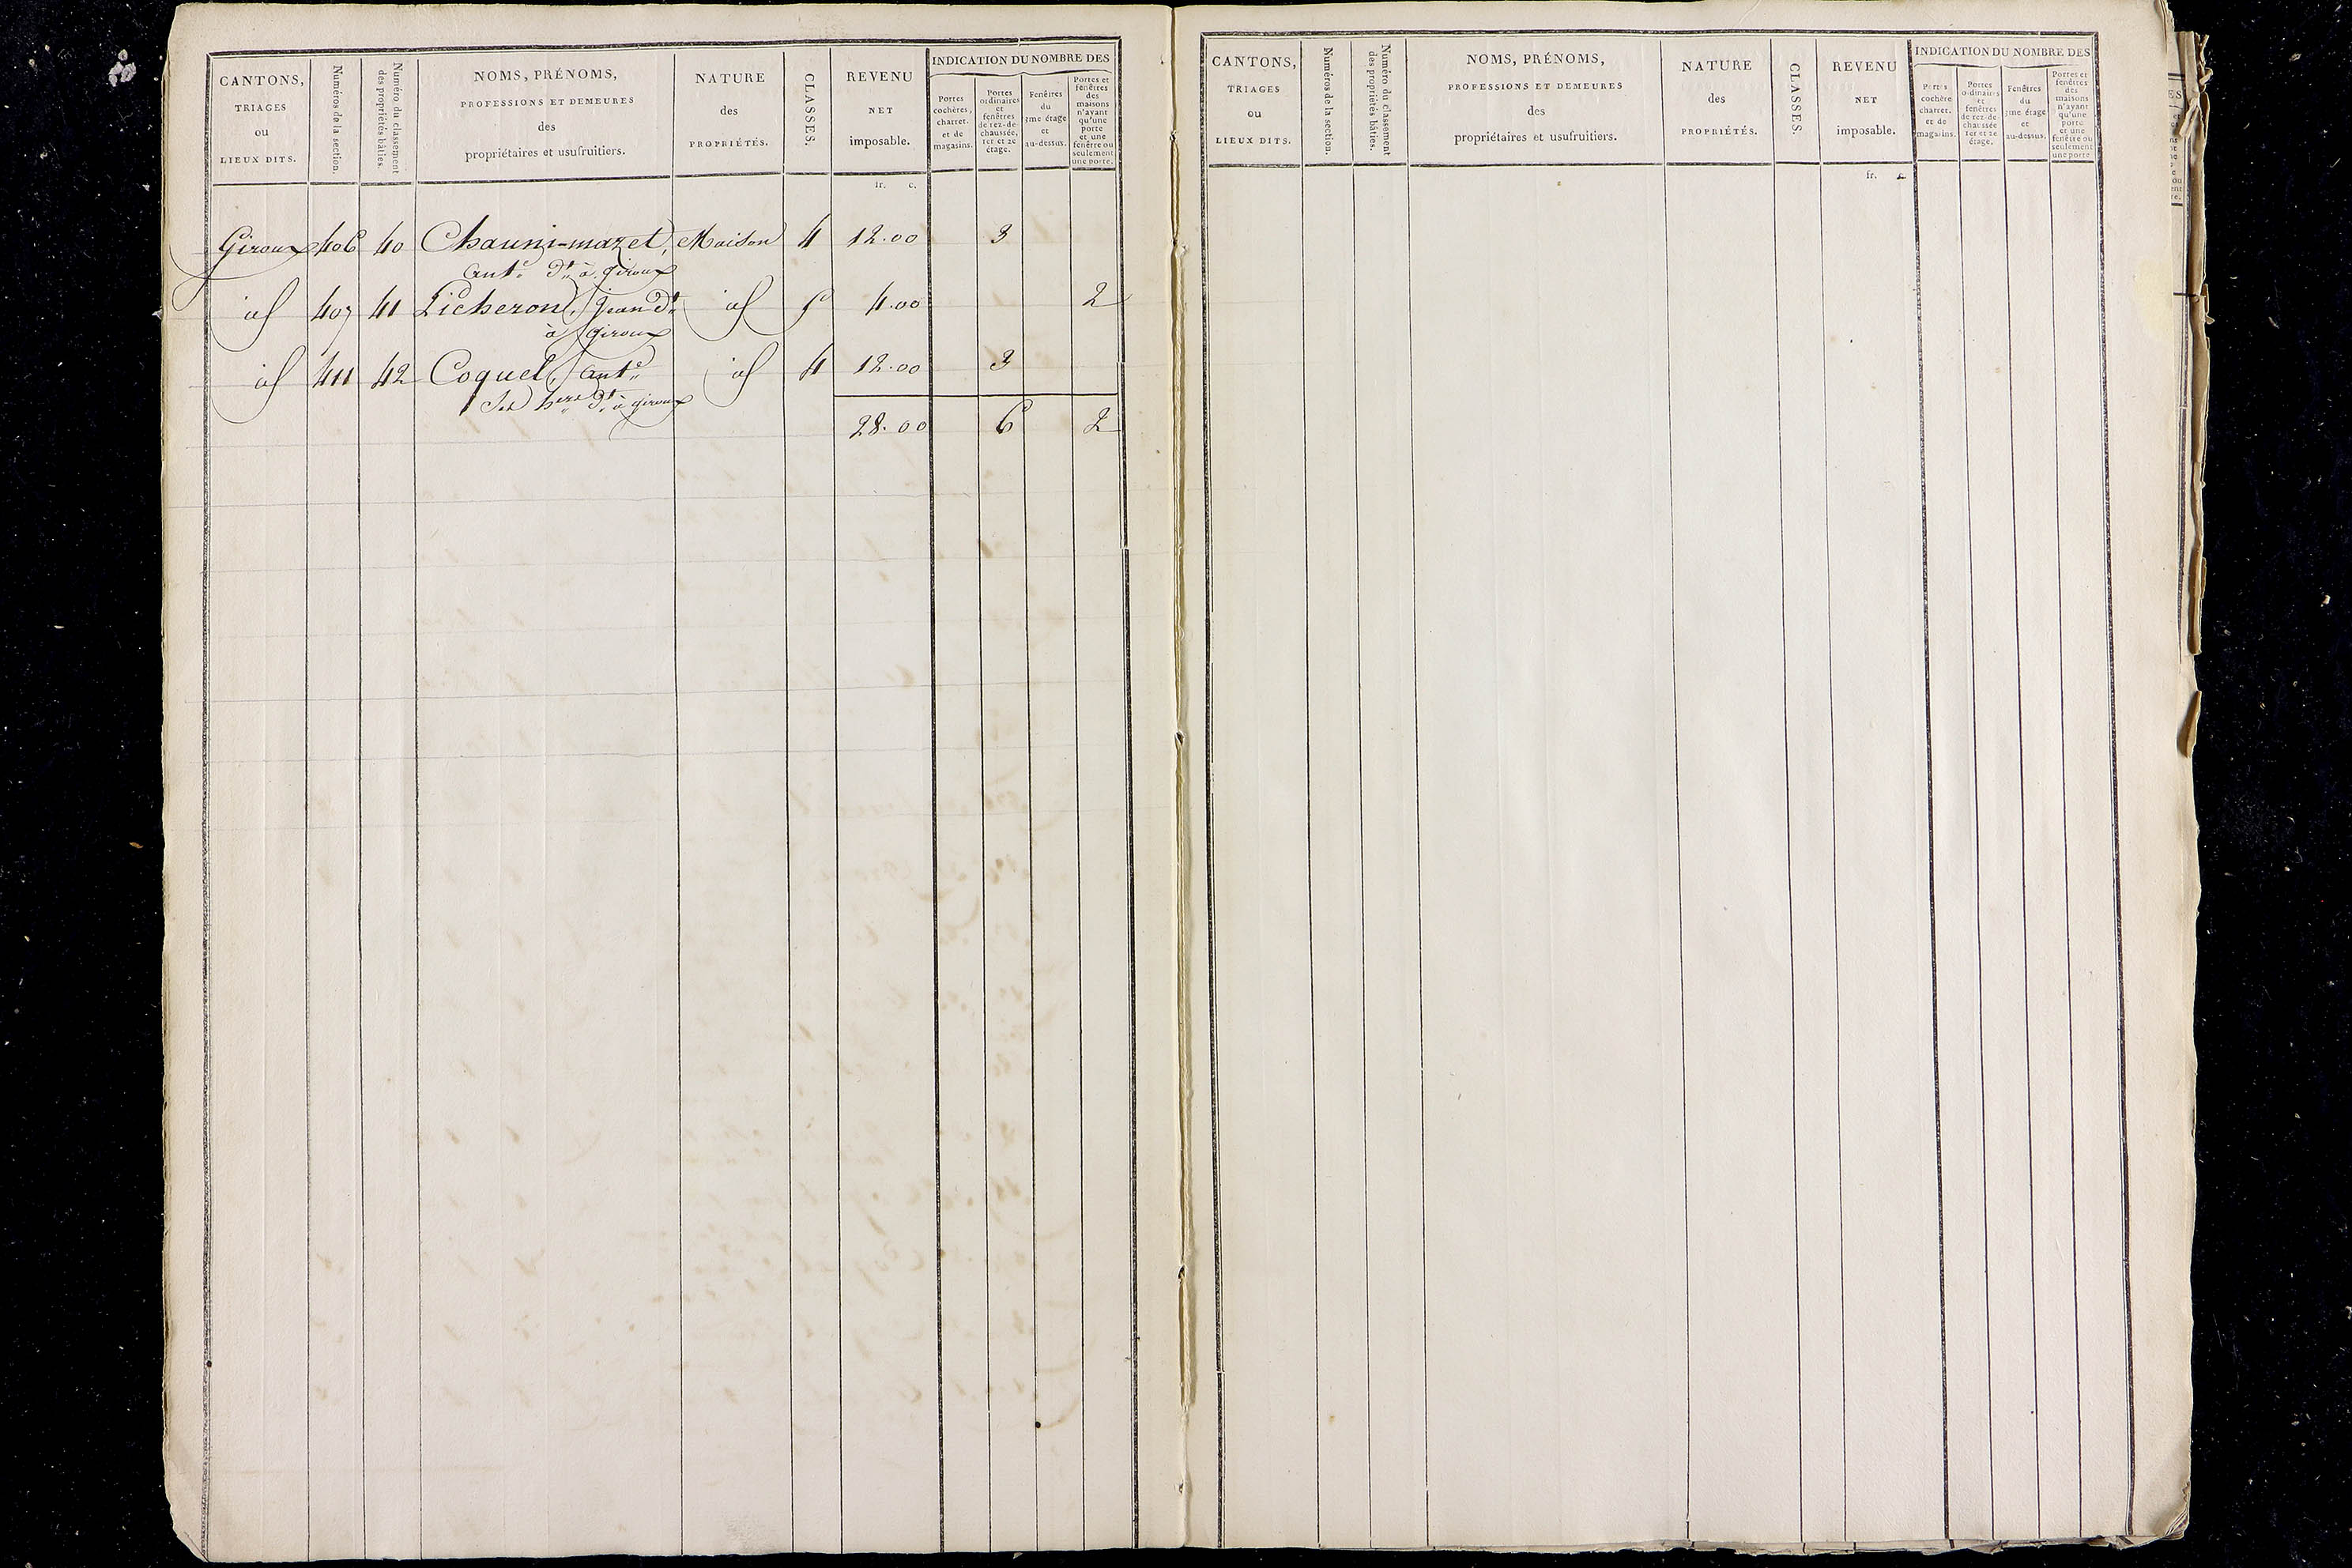 CANTONS, TRIAGES ou LIEUX DITS.
Numéros de la section.
Numéro du classement des propriétés bâties.
NOMS, PRÉNOMS, PROFESSIONS ET DEMEURES des propriétaires et usufruitiers.
NATURE des PROPRIÉTÉS.
CLASSES.
REVENU NET imposable.
INDICATION DU NOMBRE DES
Portes cochères, charret. et de magasins.
Portes ordinaires et fenêtres de rez-de-chaussée, 1er et 2e étage.
Fenêtres du 3me étage et au-dessus.
Portes et fenêtres des maisons n'ayant qu'une porte et une fenêtre ou seulement une porte.
fr. c.
Giroux 406 40 Chauni-mazet, Maison 4 12.00 3
ant.e dt à giroux
id 407 41 Licheron, jean dt id 5 4.00 2
à giroux
id 411 42 Coquel, ant.e id 4 12.00 3
Ses hers dt à giroux
28.00 6 2
CANTONS, TRIAGES ou LIEUX DITS.
Numéros de la section.
Numéro du classement des propriétés bâties.
NOMS, PRÉNOMS, PROFESSIONS ET DEMEURES des propriétaires et usufruitiers.
NATURE des PROPRIÉTÉS.
CLASSES.
REVENU NET imposable.
INDICATION DU NOMBRE DES
Portes cochère charret. et de magasins.
Portes ordinaires et fenêtres de rez-de-chaussée 1er et 2e étage.
Fenêtres du 3me étage et au-dessus.
Portes et fenêtres des maisons n'ayant qu'une porte et une fenêtre ou seulement une porte
fr. c.